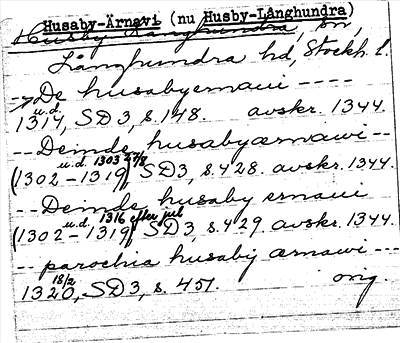 Husaby-Ärnavi (nu Husby-Långhundra)
Husby Långhundra, sn,
Långhundra hd, Stockh. l.
--De husabyernaui ----
u.d.
1314, SD3, s. 148. avskr. 1344.
--Deinde husabyærnawi --
u.d. 1303 27/8
(1302-1319) SD3, s. 428. avskr. 1344.
--Deinde husaby ernaui
u.d. 1316 efter jul
(1302-1319) SD3, s. 429 avskr. 1344.
--parochia husabij ærnawi ---
18/2
1320, SD3, s. 451. orig.